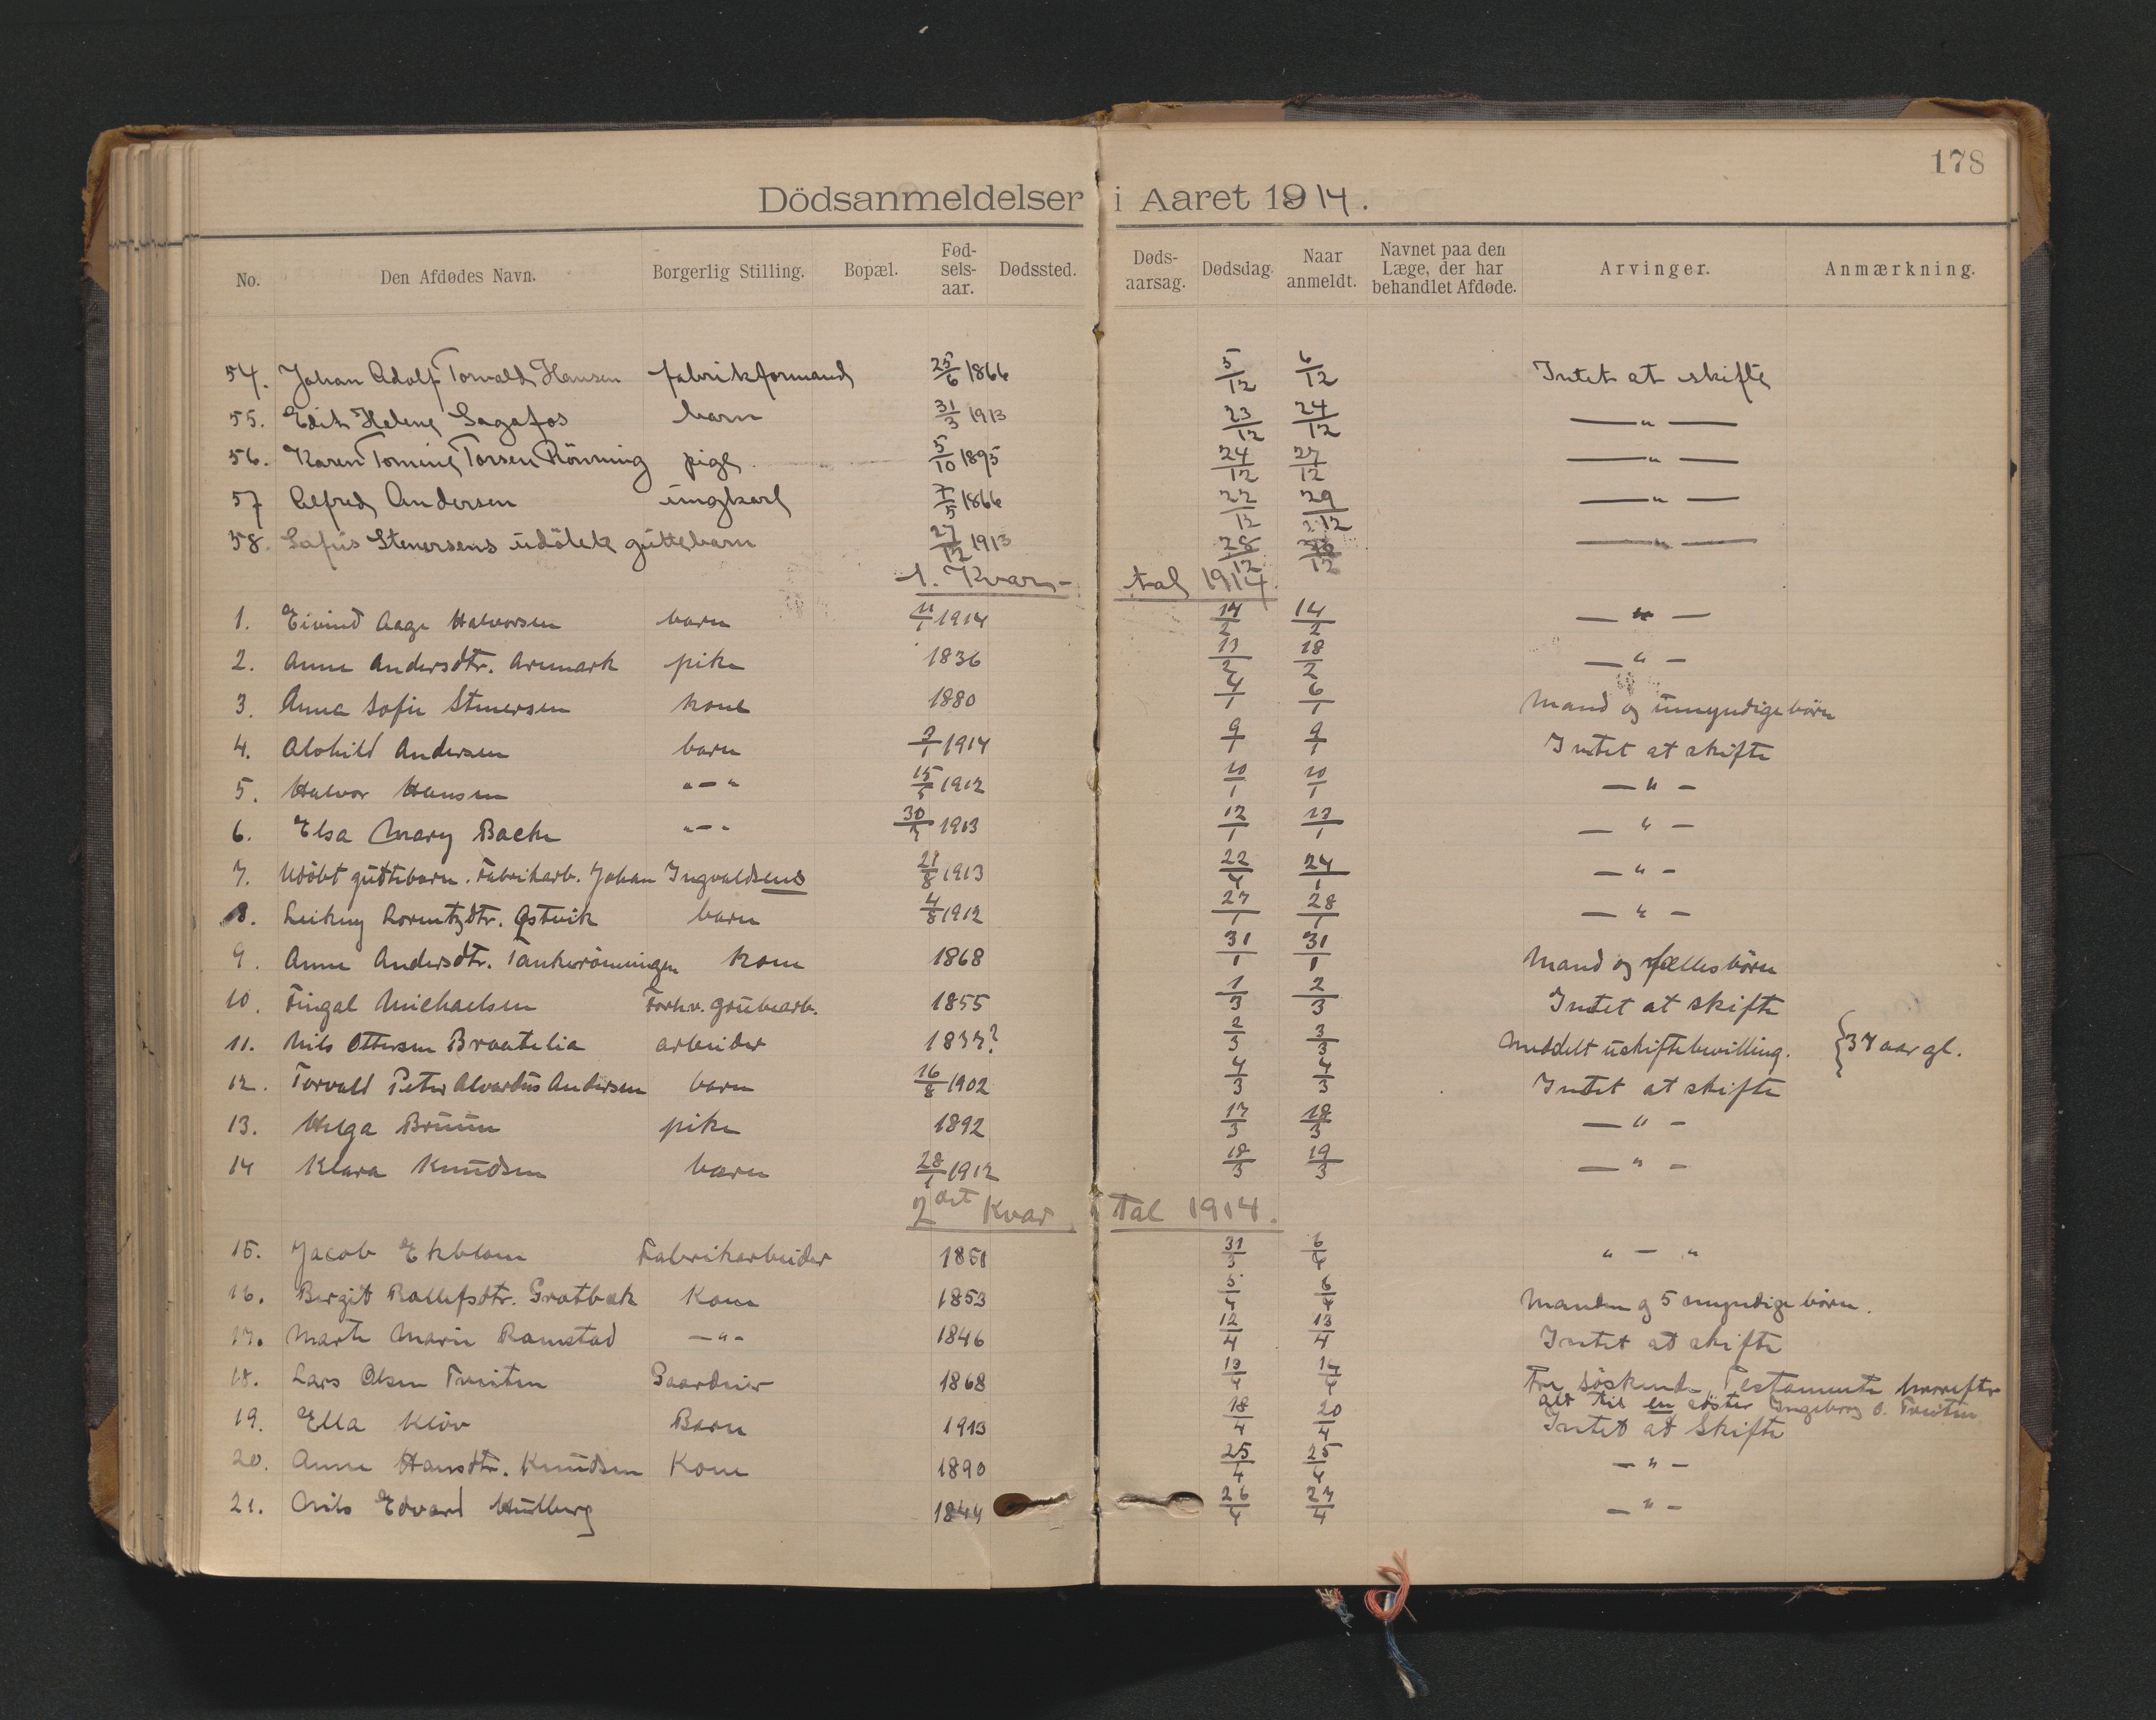 178
Dödsanmeldelser i Aaret 1914.
No. Den Afdødes Navn. Borgerlig Stilling. Bopæl. Fødselsaar. Dødssted. Dødsaarsag. Dødsdag. Naar anmeldt. Navnet paa den Læge, der har behandlet Afdøde. Arvinger. Anmærkning.
54. Johan Adolf Torvald Hansen fabrikformand 25/6 1866 5/12 6/12 Intet at skifte
55. Edith Helene Sagafos barn 31/3 1913 23/12 24/12 — " —
56. Karen Tomine Torsen Rönning pige 5/10 1895 24/12 27/12 — " —
57 Alfred Andersen ungkarl 7/5 1866 22/12 29/12 — " —
58. Stenersens udöbte guttebarn 27/12 1913 28/12 — " —
1. Kvartal 1914
1. Eivind Aage Halvorsen barn 11/1 1914 14/2 14/2 — " —
2. Anne Andersdtr. Aremark pike 1836 13/2 18/2 — " —
3. Anna Sofie Stenersen kone 1880 4/1 6/1 Mand og umyndige börn
4. Alvhild Andersen barn 1914 9/1 9/1 Intet at skifte
5. Halvor Hansen " — " 15/5 1912 10/1 10/1 — " —
6. Elsa Mary Backe " — " 1913 12/1 13/1 — " —
7. Udöbt guttebarn. Fabrikarb. Johan Ingvaldsens 21/8 1913 22/ 24/1 — " —
8. Leikny Lorentzdtr. Østvik barn 4/8 1912 27/1 28/1 — " —
9. Anne Andersdtr. Tankerönningen kone 1868 31/1 31/1 Mand og fællesbörn
10. Fingal Michaelsen Forhv. grubearb. 1855 1/3 2/3 Intet at skifte
11. Nils Ottersen Braatelia arbeider 1837? 2/3 3/3 Meddelt uskiftebevilling. {37 aar gl.
12. Torvald Peter Alvartus Andersen barn 16/8 1902 4/3 4/3 Intet at skifte
13. Helga Bruun pike 1892 17/3 18/3 — " —
14 Klara Knudsen barn 28/1 1912 18/3 19/3 — " —
2det Kvartal 1914.
15. Jacob Ekblom Fabrikarbeider 1851 31/3 6/4 " — "
16. Bergit Rollefsdtr. Grotbæk Kone 1853 5/4 6/4 Manden og 5 myndige börn.
17. Marte Marie Ramstad — " — 1846 12/4 13/4 Intet at skifte
18. Lars Olsen Tveiten Gaardeier 1868 13/4 14/4 Tre söskende, Testamente hvorefter
alt til en söster Ingeborg O. Tveiten
19. Ella Klöv Barn 1913 18/4 20/4 Intet at Skifte
20. Anne Hansdtr. Knudsen Kone 1890 25/4 25/4 — " —
21. Nils Edvard Hultberg 1844 26/4 27/4 — " —